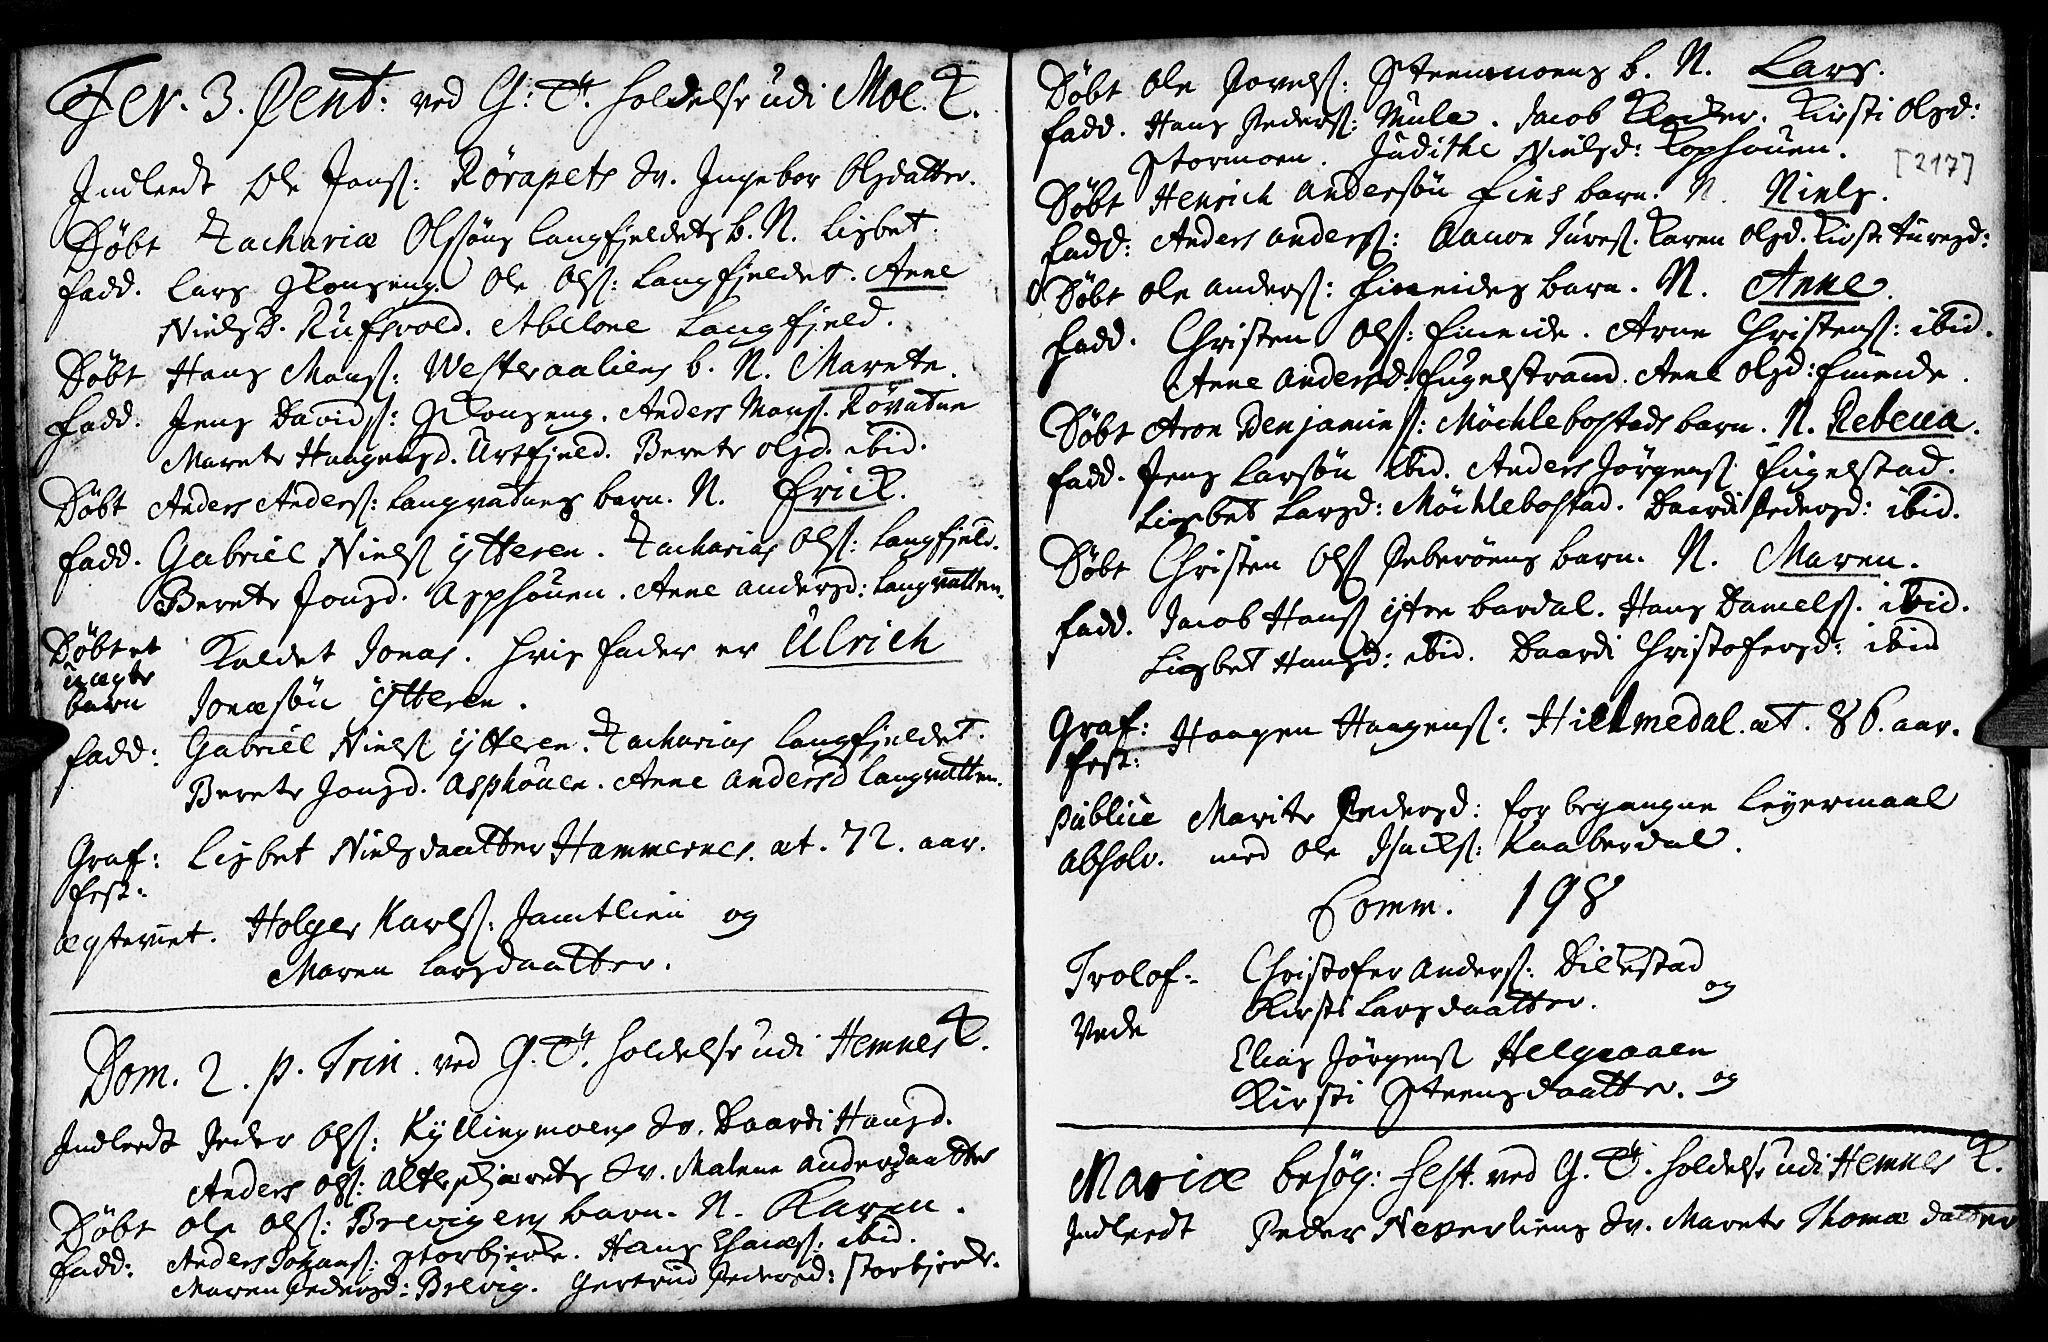 Fer. 3. Pent: ved G: T: holdelse udi Moe K.
Indleedt Ole Jonß: Rörapets Qv. Ingebor Olsdatter.
Döbt Zachariæ Olssöns Langfjeldets b. N. Lisbet.
fadd. Lars Glonseng. Ole Olß: Langfjeldet. Anne
Nielsd. Rufsvold. Abelone Langfjeld.
Döbt Hans Monsß: Westeraaliens b. N. Marete.
fadd. Jens Davidß: Glonseng. Anders Monsß. Rövatne
Marete Haagensd. Urtfjeld. Berete Olsd. ibid.
Döbt Anders Andersß: Langvatnes barn. N. Erick.
fadd. Gabriel Nielsß Ytteren. Zacharias Olß: Langfjeld.
Berete Jonsd. Asphouen. Anne Andersd: Langvatten.
Döbt et uægte barn Kaldet Jonas. hvis fader er Ulrich
Jonæsön Ytteren.
fadd: Gabriel Nielsß Ytteren. Zacharias Langfjeldet.
Berete Jonsd. Asphouen. Anne Andersd Langvatten.
Graf: fest: Lisbet Nielsdaatter Hammernes. æt. 72. aar.
ægteviet. Holger Karlß: Jamtlien og
Maren Larsdaatter.
Dom. 2. p. Trin. ved G. T. holdelse udi Hemnes K.
Indleedt Peder Olß: Kyllingmoens Qv. Baardi Hansd.
Anders Olß: Alterskjærets Qv. Malene Andersdaatter
Döbt Ole Olß: Brevigens barn. N. Karen.
fadd: Anders Johansß: Storbjerke. Hans ibid.
Maren Pedersd: Brevig. Gertrud Pedersd: Storbjerke.
Döbt Ole Povelß: Steenmoens b. N. Lars.
fadd. Hans Pedersß: Mule. Jacob Klocker. Kirsti Olsd:
Stormoen. Judithe Nielsd: Kophouen.
[217]
Döbt Henrich Andersön Fins barn. N. Niels.
fadd: Anders Andersß: Aanon Turesß. Karen Olsd. Kirsti Turesd:
Döbt Ole Andersß: Fineides barn. N. Anne.
fadd. Christen Olß: Fineide. Arne Christensß: ibid.
Anne Andersd: Fugelstrand. Anne Olsd: Fineide.
Döbt Aron Benjaminß: Möchlebostads barn. N. Rebecca.
fadd. Jens Larsön ibid. Anders Jörgensß Fugelstad.
Lisbet Larsd: Möchlebostad. Baardi Pedersd: ibid.
Döbt Christen Olß Peberöens barn. N. Maren.
fadd. Jacob Hansß Ytre Bardal. Hans Danielsß. ibid.
Lisbet Hansd: ibid. Baardi Christofersd: ibid
Graf: fest: Haagen Haagensß: Hielmedal. æt. 86. aar.
publice Marite Pedersd: for begangne Leyermaal
absolv. med Ole Isacksß: Kaaberdal.
Comm. 198
Trolof- Christofer Andersß: Dilkestad og
Kirsti Larsdaatter.
vede Elias Jörgensß Helgeaaen
Kirsti Steensdaatter. og
Mariæ besög: fest. ved G. T. holdelse udi Hemnes K.
Indleedt Peder Neverliens Qv. Marete Thomædatter